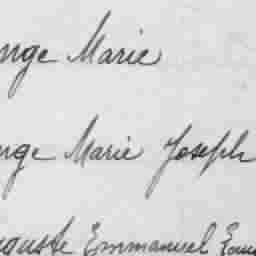 nge Marie
nge Marie Joseph
guste Emmanuel